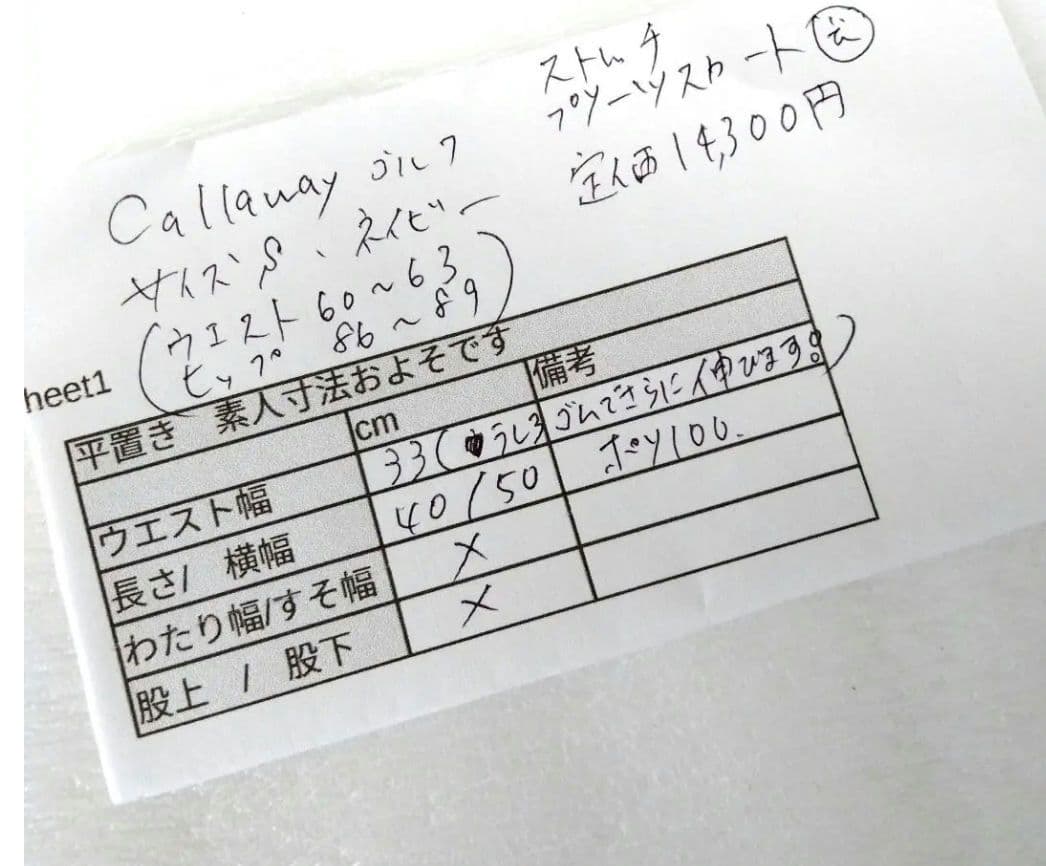 ストレッチ
プリーツスカート
定価14,300円
Callaway ゴルフ
サイズS、ネイビー
(ウエスト60~63
ヒップ 86~89)
heet1
平置き 素人寸法およそです
cm 備考
ウエスト幅 33(うしろゴムでさらに伸びます!)
長さ/ 横幅 40/50 ポリ100.
わたり幅/すそ幅 ×
股上 / 股下 ×